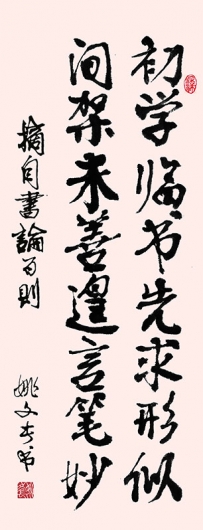 初学临书先求形似
间架未善遑言笔妙
摘自書論百則
姚文奎书